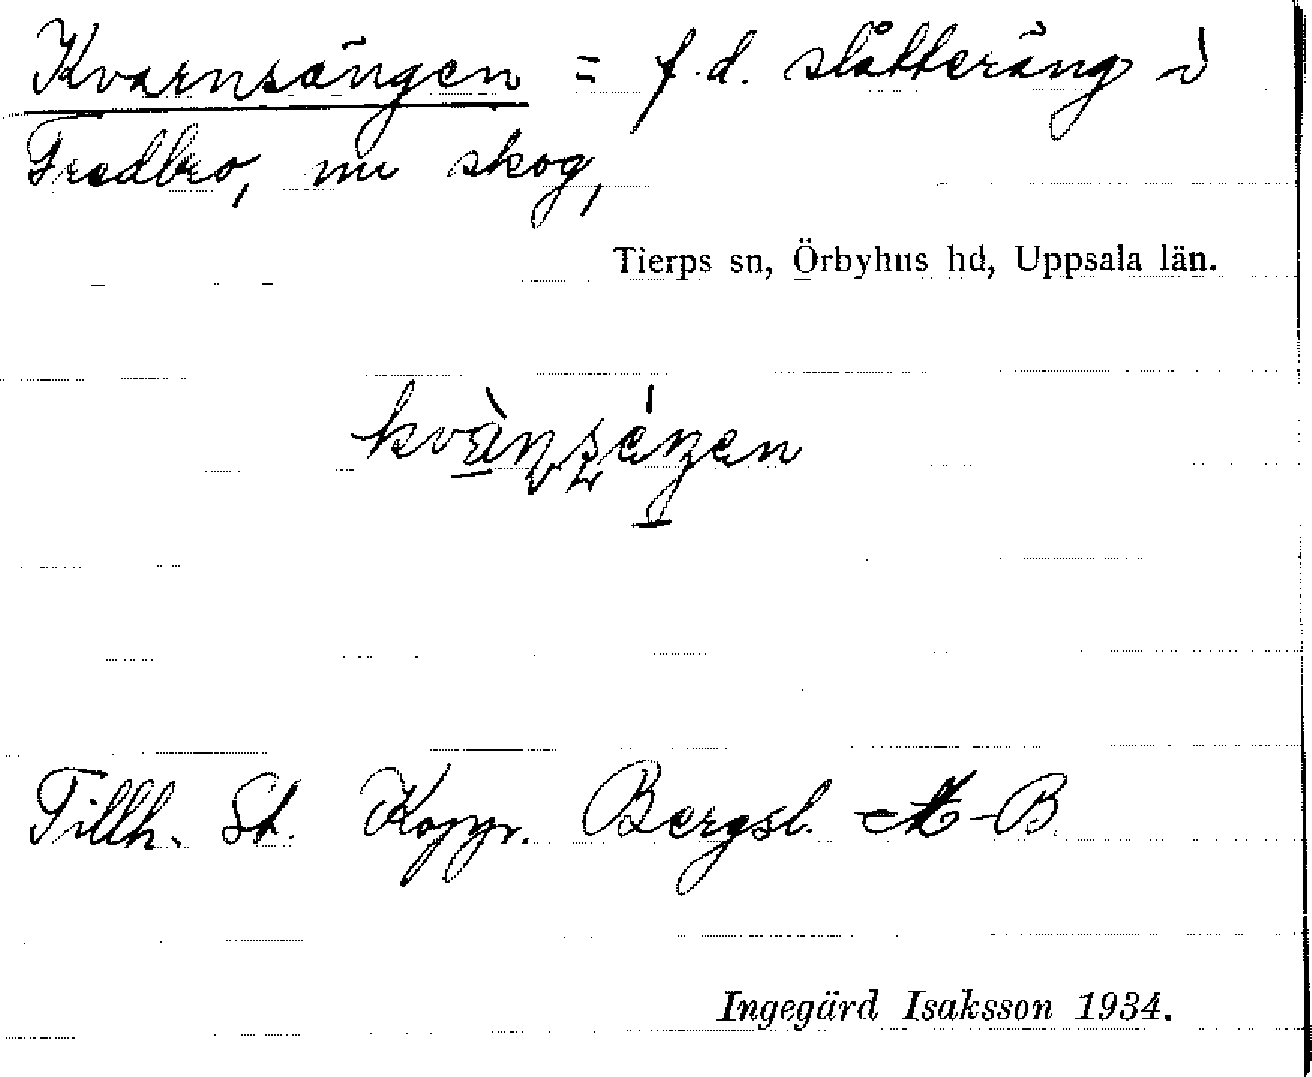 Kvarnsängen = f.d. slåtteräng i
Fredbro, nu skog,
Tierps sn, Örbyhus hd, Uppsala län.
Tillh. St. Koppr. Bergsl. A-B
Ingegärd Isaksson 1934.